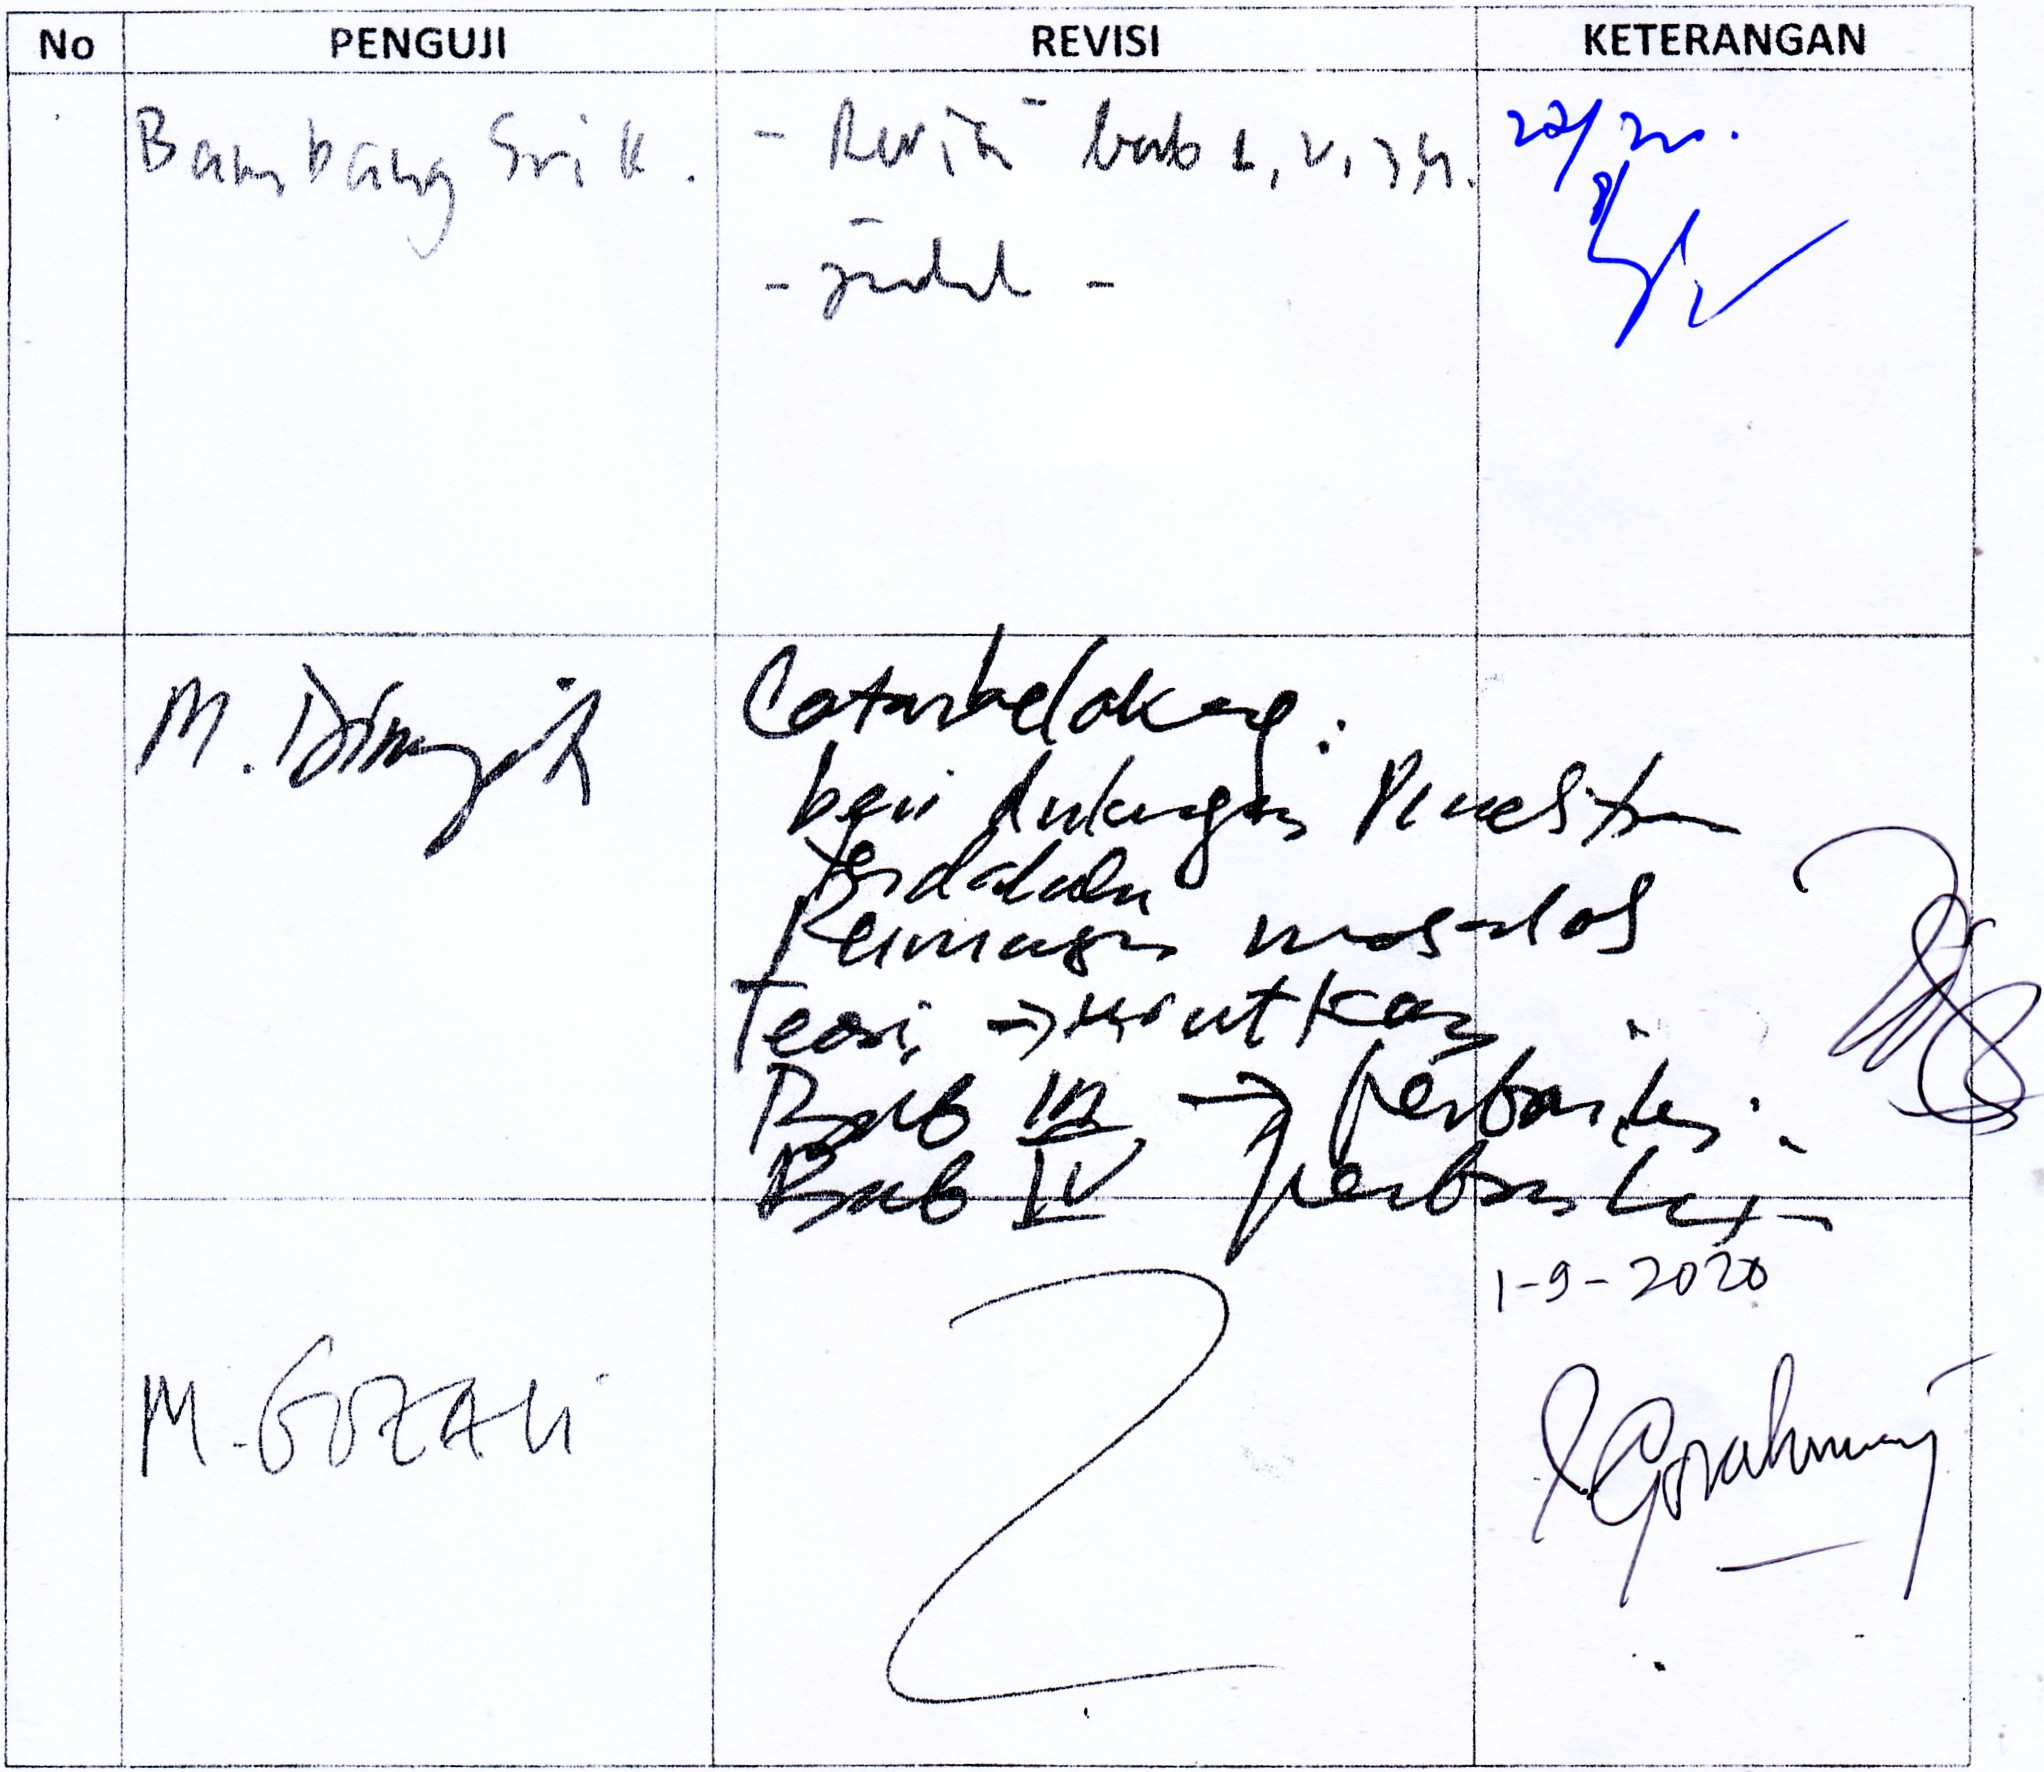 No PENGUJI REVISI KETERANGAN
Bambang Srik. - Revisi bab 1, 2, 3, 4.
- judul -
M. Dimyati Latarbelakang:
beri dukungan Penelitian
Terdahulu
Rumusan masalah
Teori → urutkan
Bab III → perbaiki
Bab IV perbaiki
1-9-2020
M. GOZALI